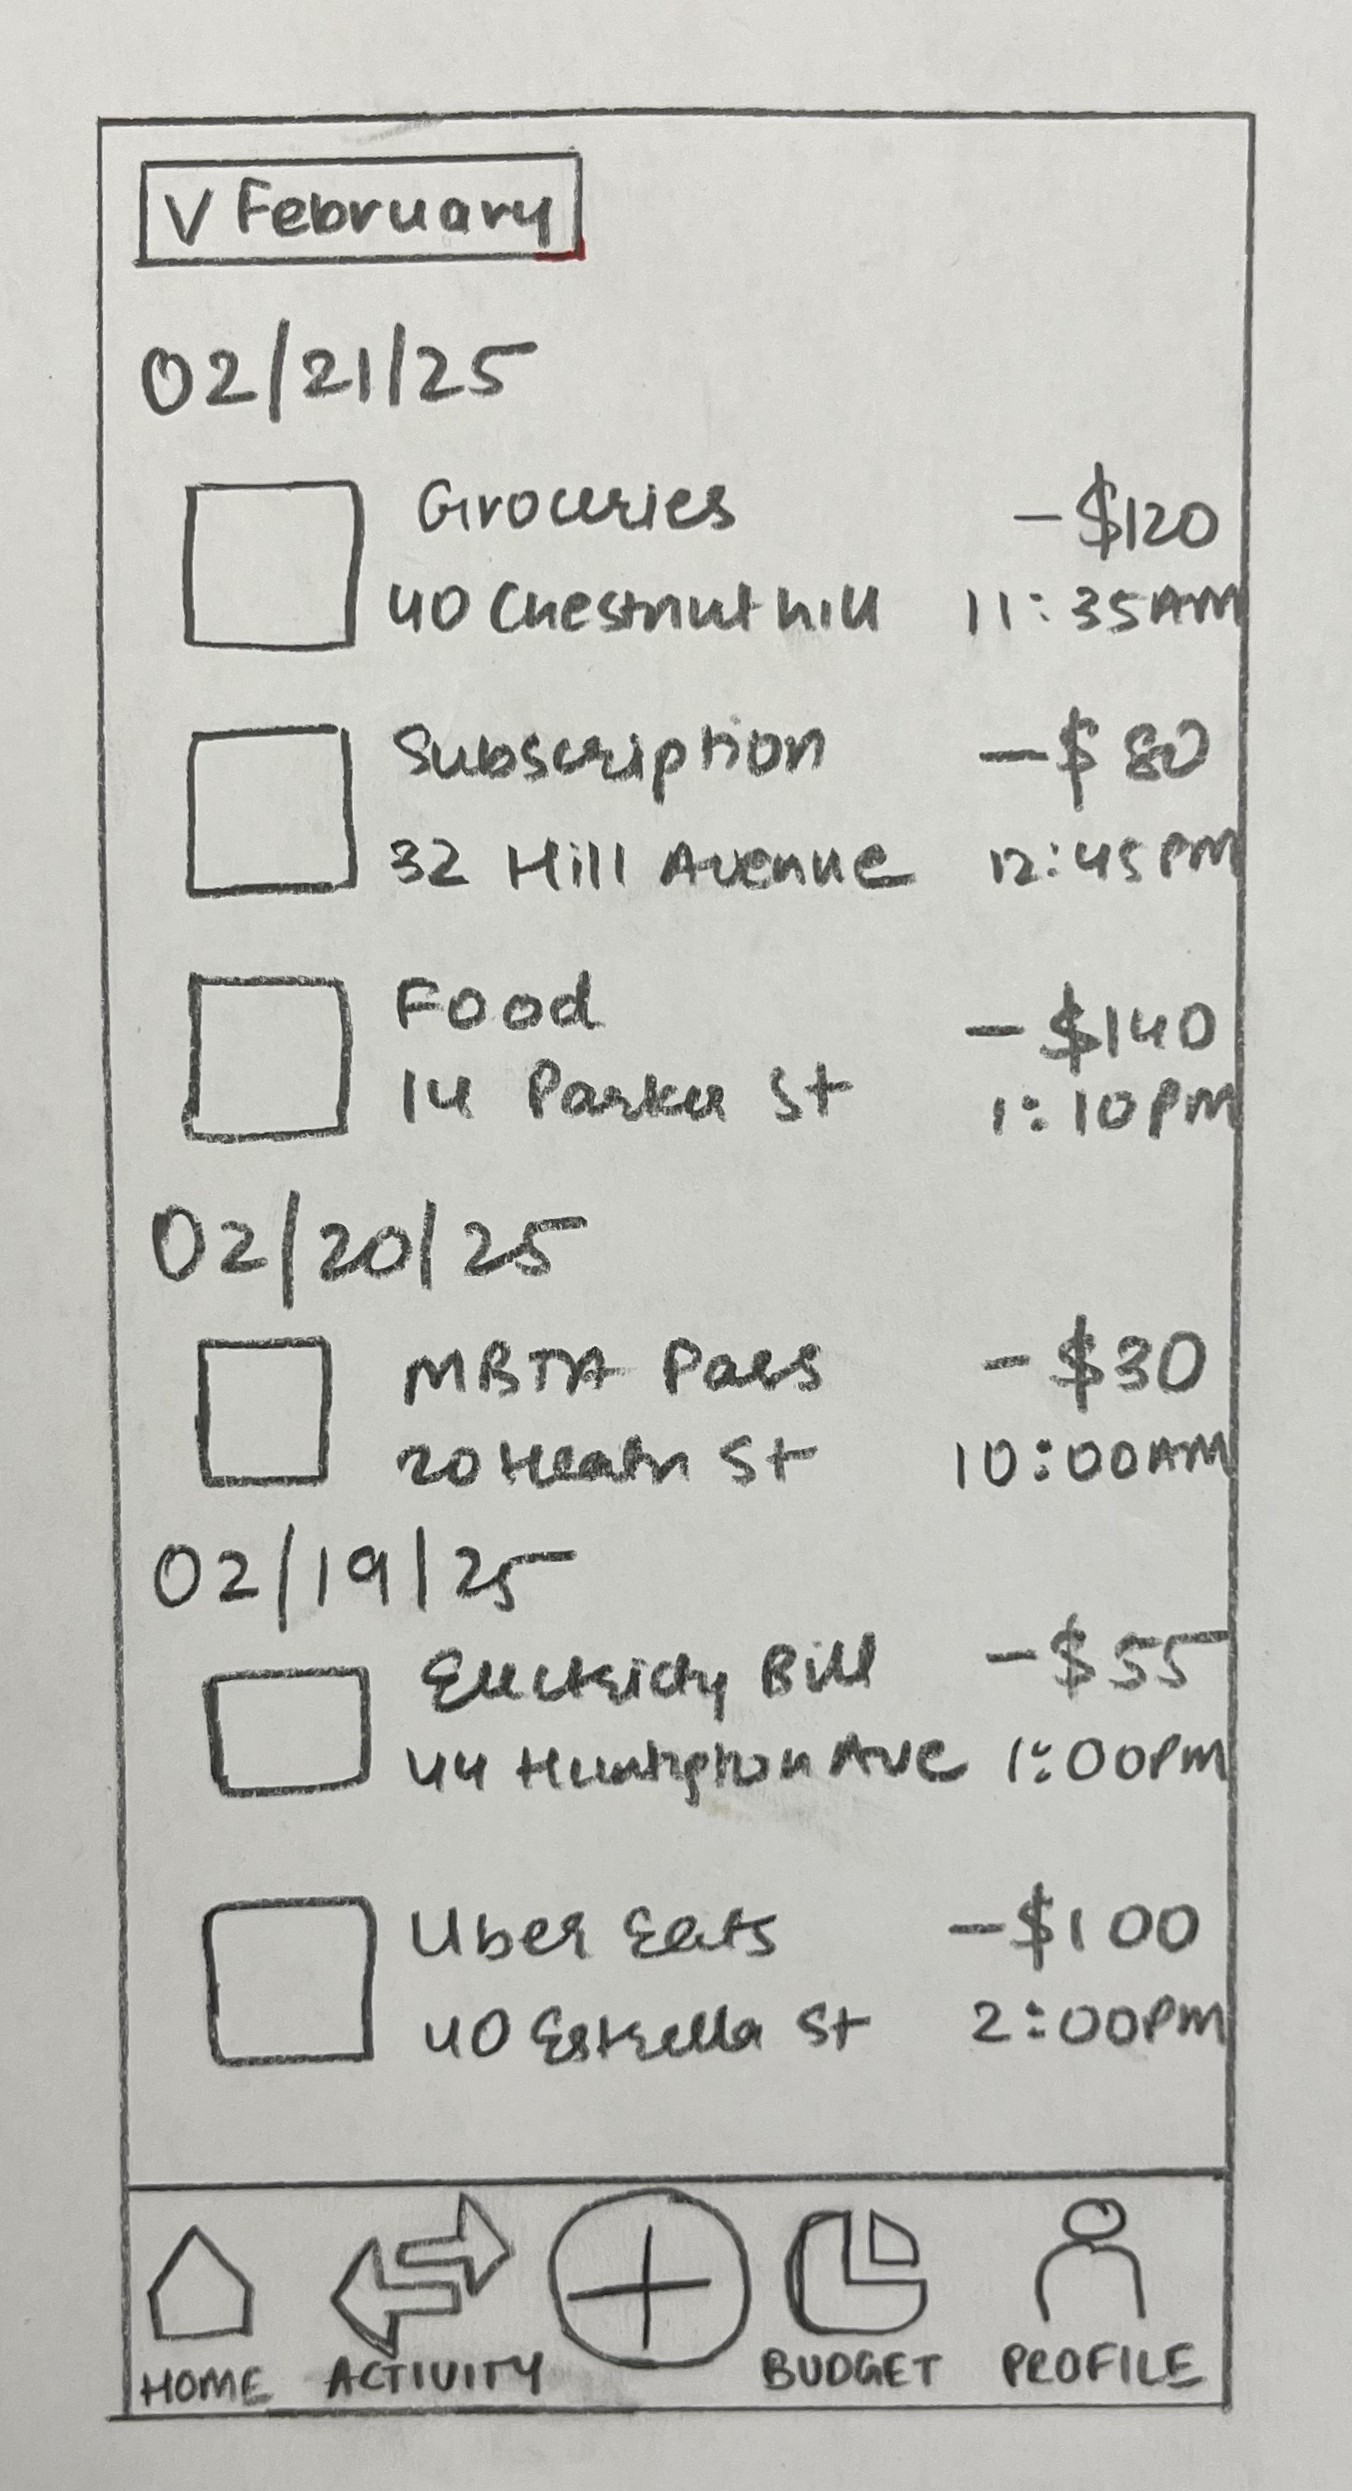 V February
02/21/25
Groceries -$120
40 Chestnut hill 11:35AM
Subscription -$80
32 Hill Avenue 12:45PM
Food -$140
14 Parker St 1:10PM
02/20/25
MBTA Pass -$30
20 Heath St 10:00AM
02/19/25
Electricity Bill -$55
44 Huntington Ave 1:00PM
Uber Eats -$100
40 Estrella St 2:00PM
HOME ACTIVITY BUDGET PROFILE